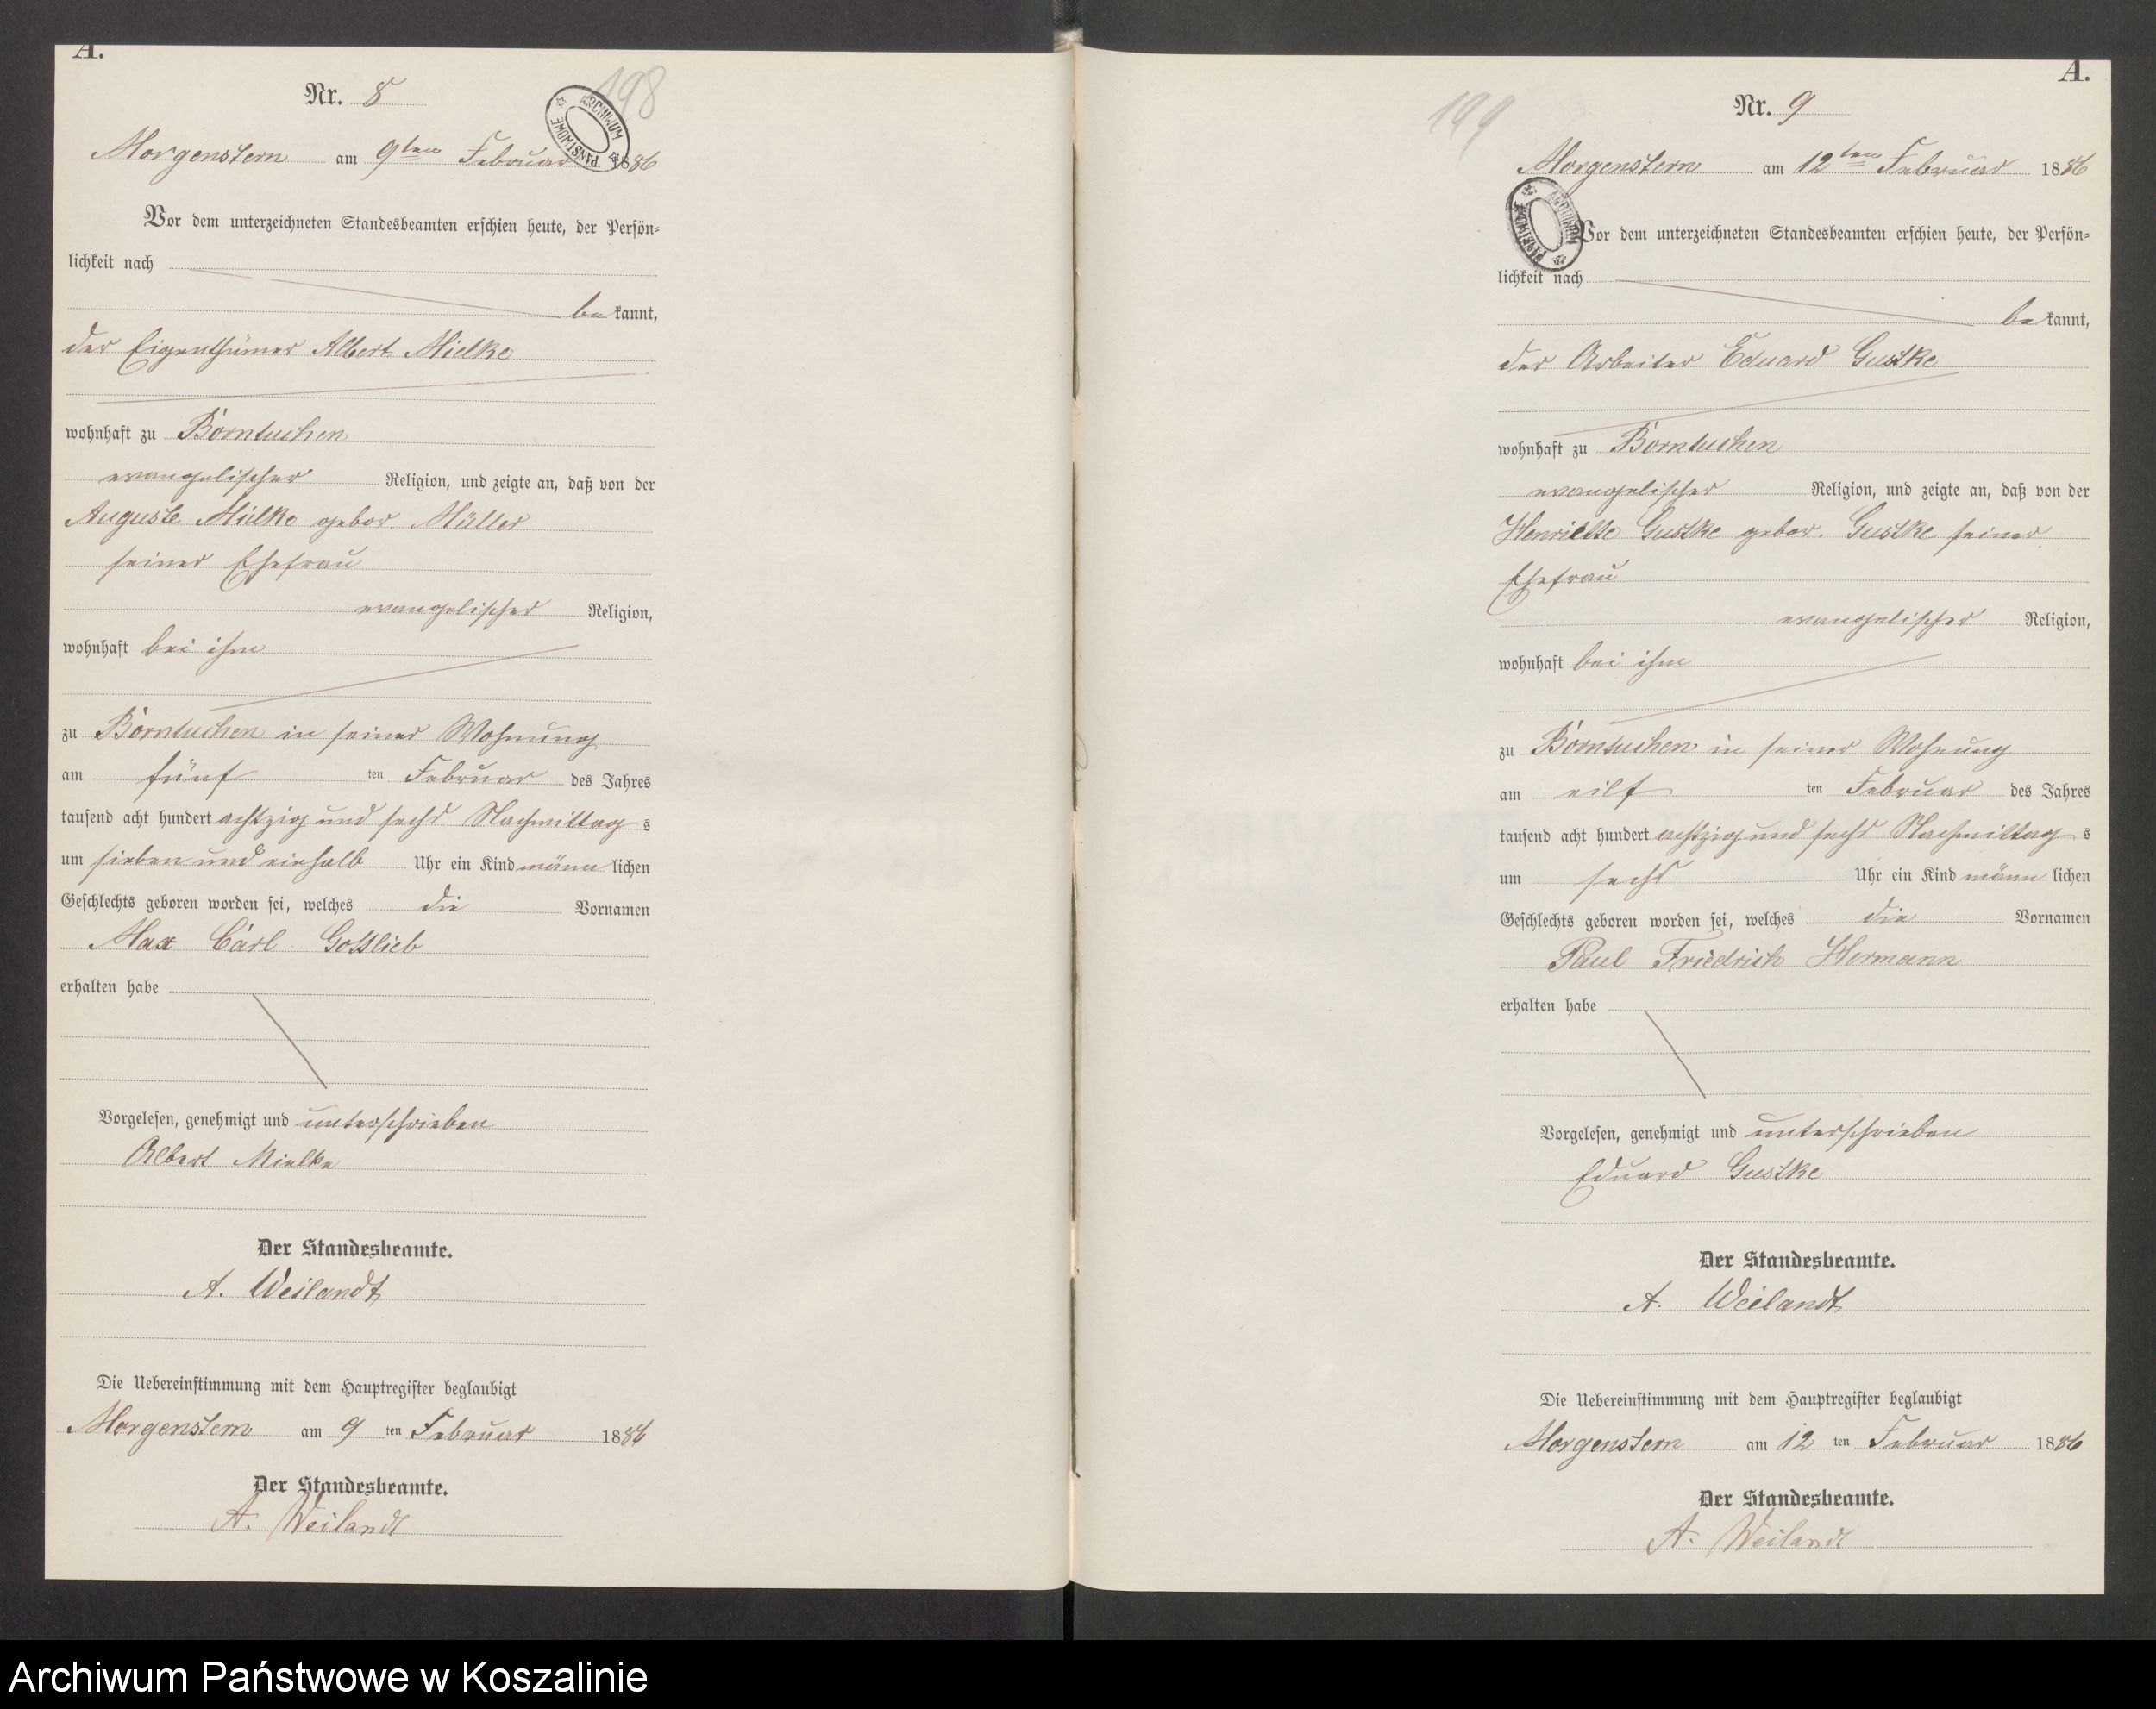 A.
Nr. 8
198
ARCHIWUM PAŃSTWOWE
Morgenstern am 9ten Februar 1886
Vor dem unterzeichneten Standesbeamten erschien heute, der Persön-
lichkeit nach
bekannt,
der Eigenthümer Albert Mielke
wohnhaft zu Borntuchen
evangelischer Religion, und zeigte an, daß von der
Auguste Mielke gebor. Müller
seiner Ehefrau
evangelischer Religion,
wohnhaft bei ihm
zu Borntuchen in seiner Wohnung
am fünf ten Februar des Jahres
tausend acht hundert achtzig und sechs Nachmittag s
um sieben und einhalb Uhr ein Kind männlichen
Geschlechts geboren worden sei, welches die Vornamen
Max Carl Gottlieb
erhalten habe
Vorgelesen, genehmigt und unterschrieben
Albert Mielke
Der Standesbeamte.
A. Weilandt
Die Uebereinstimmung mit dem Hauptregister beglaubigt
Morgenstern am 9 ten Februar 1886
Der Standesbeamte.
A. Weilandt
A.
Nr. 9
199
Morgenstern am 12ten Februar 1886
ARCHIWUM PAŃSTWOWE
Vor dem unterzeichneten Standesbeamten erschien heute, der Persön-
lichkeit nach
bekannt,
der Arbeiter Eduard Gustke
wohnhaft zu Borntuchen
evangelischer Religion, und zeigte an, daß von der
Henriette Gustke gebor. Gustke seiner
Ehefrau
evangelischer Religion,
wohnhaft bei ihm
zu Borntuchen in seiner Wohnung
am eilf ten Februar des Jahres
tausend acht hundert achtzig und sechs Nachmittag s
um sechs Uhr ein Kind männlichen
Geschlechts geboren worden sei, welches die Vornamen
Paul Friedrich Hermann
erhalten habe
Vorgelesen, genehmigt und unterschrieben
Eduard Gustke
Der Standesbeamte.
A. Weilandt
Die Uebereinstimmung mit dem Hauptregister beglaubigt
Morgenstern am 12 ten Februar 1886
Der Standesbeamte.
A. Weilandt
Archiwum Państwowe w Koszalinie